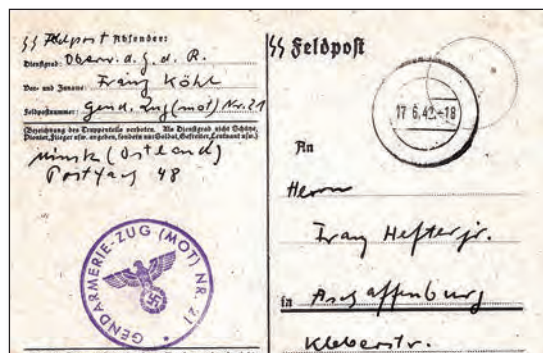 SS Feldpost Absender:
Dienstgrad: Oberw. d. G. d. R.
Vor- und Zuname: Franz Köhl
Feldpostnummer: Gend. Zug (mot) Nr. 21
(Bezeichnung des Truppenteils verboten. Als Dienstgrad nicht Schütze,
Pionier, Flieger usw. angeben, sondern nur Soldat, Gefreiter, Leutnant usw.)
Minsk (Ostland)
Postfach 48
GENDARMERIE-ZUG (MOT) NR. 21
SS Feldpost
17 6.42-18
An
Herrn
Franz Hefter jr.
in Aschaffenburg
Kleberstr.